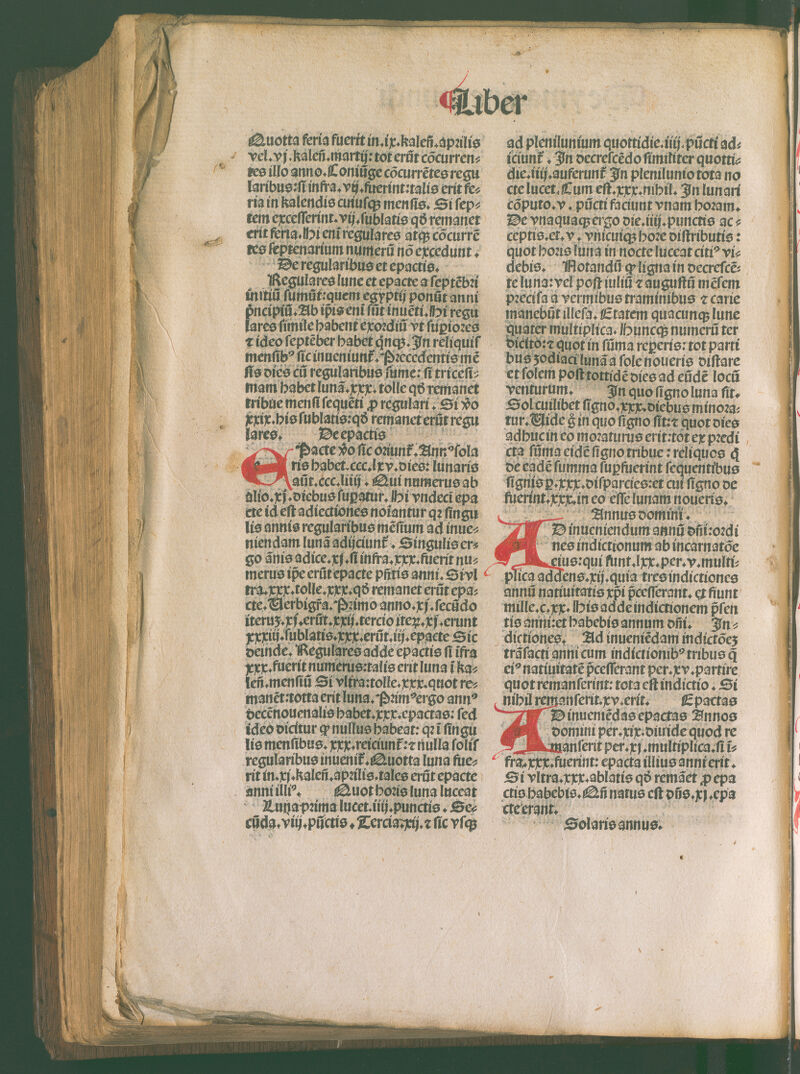 Liber
Quotta feria fuerit in.ix.kalen̄.aprilis
vel.vj.kalen̄.martij: tot erūt cōcurren⸗
tes illo anno.Coniūge cōcurrētes regu
laribus:si infra.vij.fuerint:talis erit fe⸗
ria in kalendis cuiusqꝫ mensis. Si sep⸗
tem excesserint.vij.sublatis qđ remanet
erit feria.Hi enī regulares atqꝫ cōcurrē
tes septenarium numerū nō excedunt.
De regularibus et epactis.
Regulares lune et epacte a septēbri
initiū sumūt:quem egyptij ponūt anni
p̄ncipiū.Ab ip̄is enī sūt inuēti.Hi regu
lares simile habent exordiū vt suꝑiores
⁊ ideo septēber habet q̄nqꝫ.In reliquis
mensibꝰ sic inueniunt̄.Precedentis mē
sis dies cū regularibus sume: si tricesi⸗
mam habet lunā.xxx.tolle qđ remanet
tribue mensi sequēti ꝓ regulari. Si v̄o
xxix.his sublatis:qđ remanet erūt regu
lares. De epactis
EPacte v̄o sic oriunt̄.Annꝰ sola
ris habet.ccc.lxv.dies: lunaris
aūt.ccc.liiij. Qui numerus ab
alio.xj.diebus suꝑatur.Hi vndeci epa
cte id est adiectiones noīantur qꝛ singu
lis annis regularibus mēsium ad inue⸗
niendam lunā adijciunt̄. Singulis er⸗
go ānis adice.xj.si infra.xxx.fuerit nu⸗
merus ip̄e erūt epacte p̄ntis anni. Si vl
tra.xxx.tolle.xxx.qđ remanet erūt epa⸗
cte.Verbigr̄a.Primo anno.xj.secūdo
iteruꝫ.xj.erūt.xxij.tercio iteꝝ.xj.erunt
xxxiij.sublatis.xxx.erūt.iij.epacte Sic
deinde. Regulares adde epactis si īfra
xxx.fuerit numerus:talis erit luna ī ka⸗
len̄.mensiū Si vltra:tolle.xxx.quot re⸗
manēt:totta erit luna. Primꝰ ergo annꝰ
decēnouenalis habet.xxx.epactas: sed
ideo dicitur ꝙ nullus habeat: qꝛ ī singu
lis mensibus. xxx.reiciunt̄:⁊ nulla solis
regularibus inuenit̄.Quotta luna fue⸗
rit in.xj.kalen̄.aprilis.tales erūt epacte
anni illiꝰ. Quot horis luna luceat
Luna prima lucet.iiij.punctis. Se⸗
cūda.viij.pūctis. Tercia.xij.⁊ sic vsqꝫ
ad plenilunium quottidie.iiij.pūcti ad⸗
iciunt̄. In decrescēdo similiter quotti⸗
die.iiij.auferunt̄ In plenilunio tota no
cte lucet.Cum est.xxx.nihil. In lunari
cōputo.v. pūcti faciunt vnam horam.
De vnaquaqꝫ ergo die.iiij.punctis ac⸗
ceptis.et.v. vnicuiqꝫ hore distributis:
quot horis luna in nocte luceat citiꝰ vi⸗
debis. Notandū ꝙ ligna in decrescē⸗
te luna: vel post iuliū ⁊ augustū mēsem
precisa a vermibus traminibus ⁊ carie
manebūt illesa. Etatem quacunqꝫ lune
quater multiplica. Huncqꝫ numerū ter
dicito:⁊ quot in sūma reꝑeris: tot parti
bus zodiaci lunā a sole noueris distare
et solem post tottidē dies ad eūdē locū
venturum. In quo signo luna sit.
Sol cuilibet signo.xxx.diebus minora⸗
tur. Uide ḡ in quo signo sit:⁊ quot dies
adhuc in eo moraturus erit:tot ex predi
cta sūma eidē signo tribue: reliquos q̄
de eadē summa suꝑfuerint sequentibus
signis ꝑ.xxx.disparcies:et cui signo de
fuerint.xxx.in eo esse lunam noueris.
Annus domini.
AD inueniendum annū dn̄i:ordi
nes indictionum ab incarnatōe
eius:qui sunt.lxx.per.v.multi⸗
plica addens.xij.quia tres indictiones
annū natiuitatis xp̄i p̄cesserant. ⁊ fiunt
mille.c.xx. His adde indictionem p̄sen
tis anni:et habebis annum dn̄i. In⸗
dictiones. Ad inueniēdam indictōeꝫ
trāsacti anni cum indictionibꝰ tribus q̄
eiꝰ natiuitatē p̄cesserant per.xv.partire
quot remanserint: tota est indictio. Si
nihil remanserit.xv.erit. Epactas
AD inueniēdas epactas Annos
domini per.xix.diuide quod re
manserit per.xj.multiplica.si ī⸗
fra.xxx.fuerint: epacta illius anni erit.
Si vltra.xxx.ablatis qđ remāet ꝓ epa
ctis habebis.Qn̄ natus est dn̄s.xj.epa
cte erant.
Solaris annus.